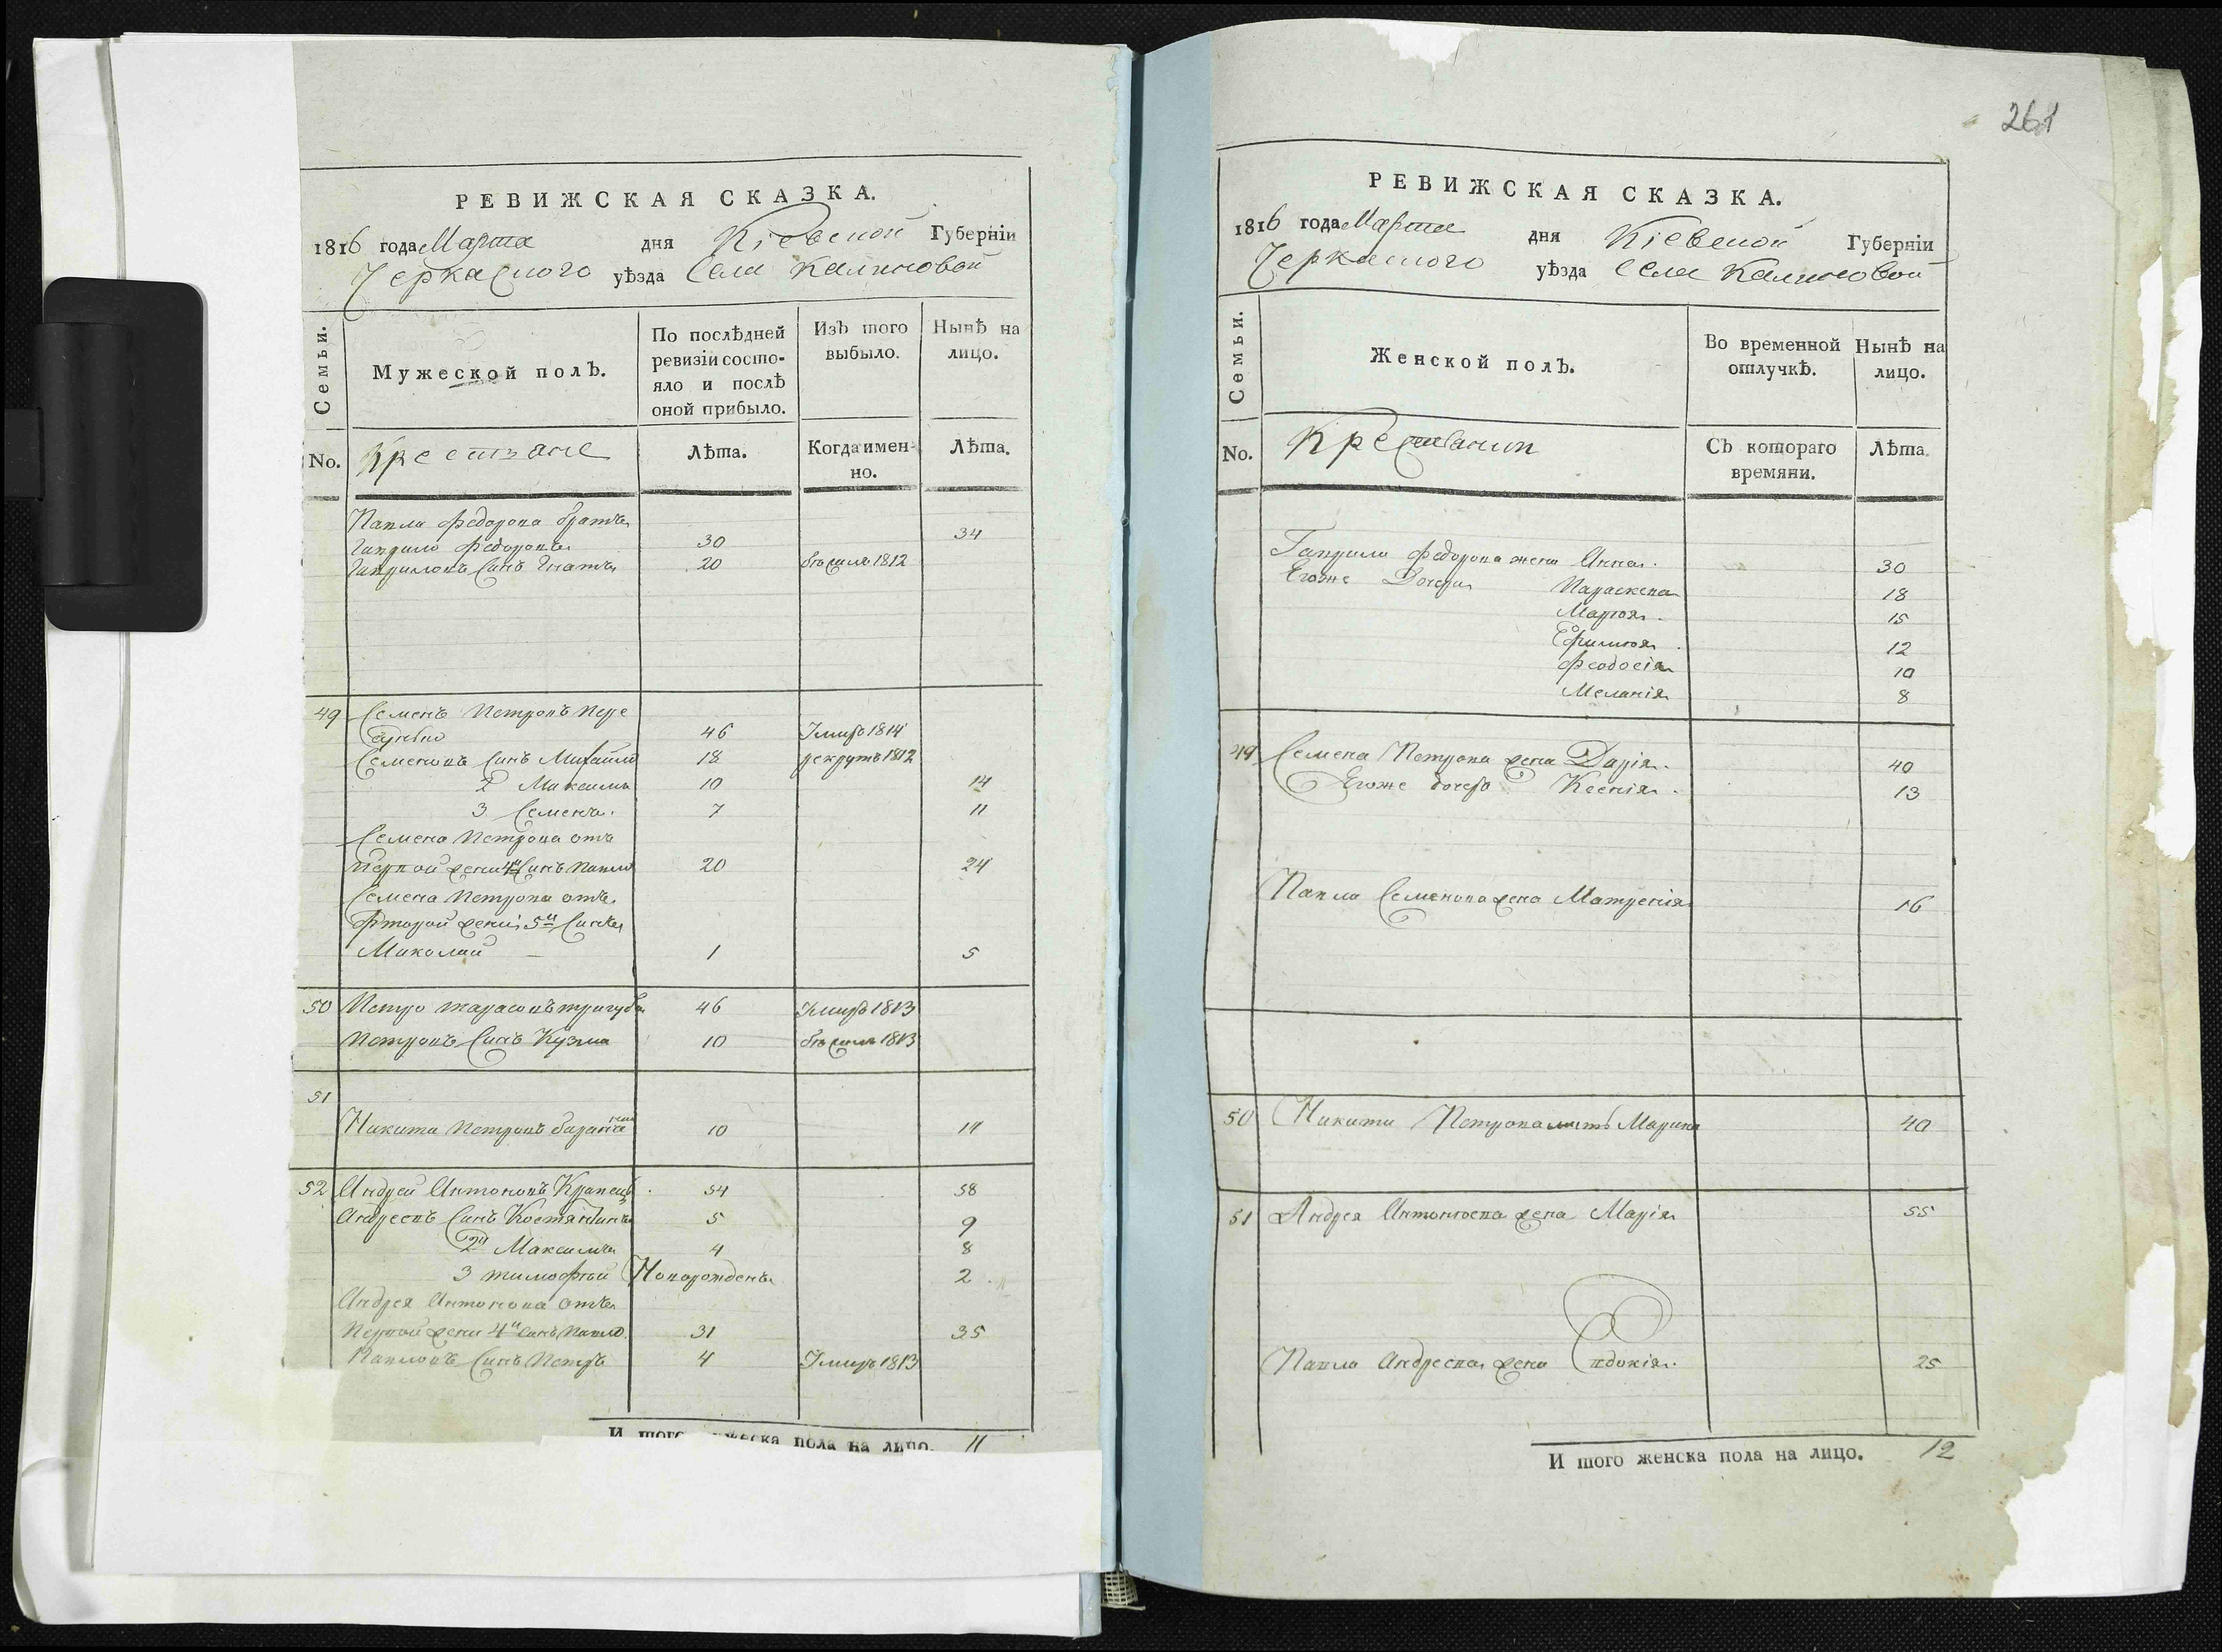 РЕВИЖСКАЯ СКАЗКА.
1816 года Марта дня Кіевской Губерніи
Черкаского уѣзда Села Калиновой
Семьи.
Мужеской полъ.
По послѣдней ревизіи состо-
яло и послѣ
оной прибыло.
Изъ того выбыло.
Нынѣ на лицо.
No. Крестяне
Лѣта.
Когда имен-
но.
Лѣта.
Павла Федорова братъ
Гаврило Федоровъ 30 34
Гавриловъ Синъ Игнатъ 20 бѣжалъ 1812
49 Семенъ Петровъ
46 Умиръ 1814
Семеновъ Синъ Михайло 18 рекрутъ 1812
2 Максимъ 10 14
3 Семенъ 7 11
Семена Петрова отъ
первой жени 4й Синъ Павло 20 24
Семена Петрова отъ
фторой жени 5й Синъ
Миколай 1 5
50 Петро тарасовъ тригубъ 46 Умиръ 1813
Петровъ Синъ Кузма 10 бѣжалъ 1813
51
Никита Петровъ 10 14
52 Андрей Антоновъ Кравецъ 54 58
Андреевъ Синъ Костянтинъ 5 9
2й Максимъ 4 8
3 тимофѣй Новорожденъ 2
Андрея Антонова отъ
Первой жени 4й синъ Павло 31 35
Павловъ Синъ Петръ 4 Умиръ 1813
И того мужеска пола на лицо. 11
261
РЕВИЖСКАЯ СКАЗКА.
1816 года Марта дня Кіевской Губерніи
Черкаского уѣзда Села Калиновой
Семьи.
Женской полъ.
Во временной отлучкѣ.
Нынѣ на лицо.
No.
Съ котораго времяни.
Лѣта.
Гаврили Федорова жена Анна 30
Егоже Дочери Параскева 18
Марѳя 15
Ефимия 12
Феодосія 10
Меланія 8
49 Семена Петрова жена Дарія 40
Егоже дочеръ Ксенія 13
Павла Семенова жена Матренія 16
50 Никити Петрова мать Марина 40
51 Андрея Антоновена жена Марія 55
Павла Андреева жена Евдокія 25
И того женска пола на лицо. 12